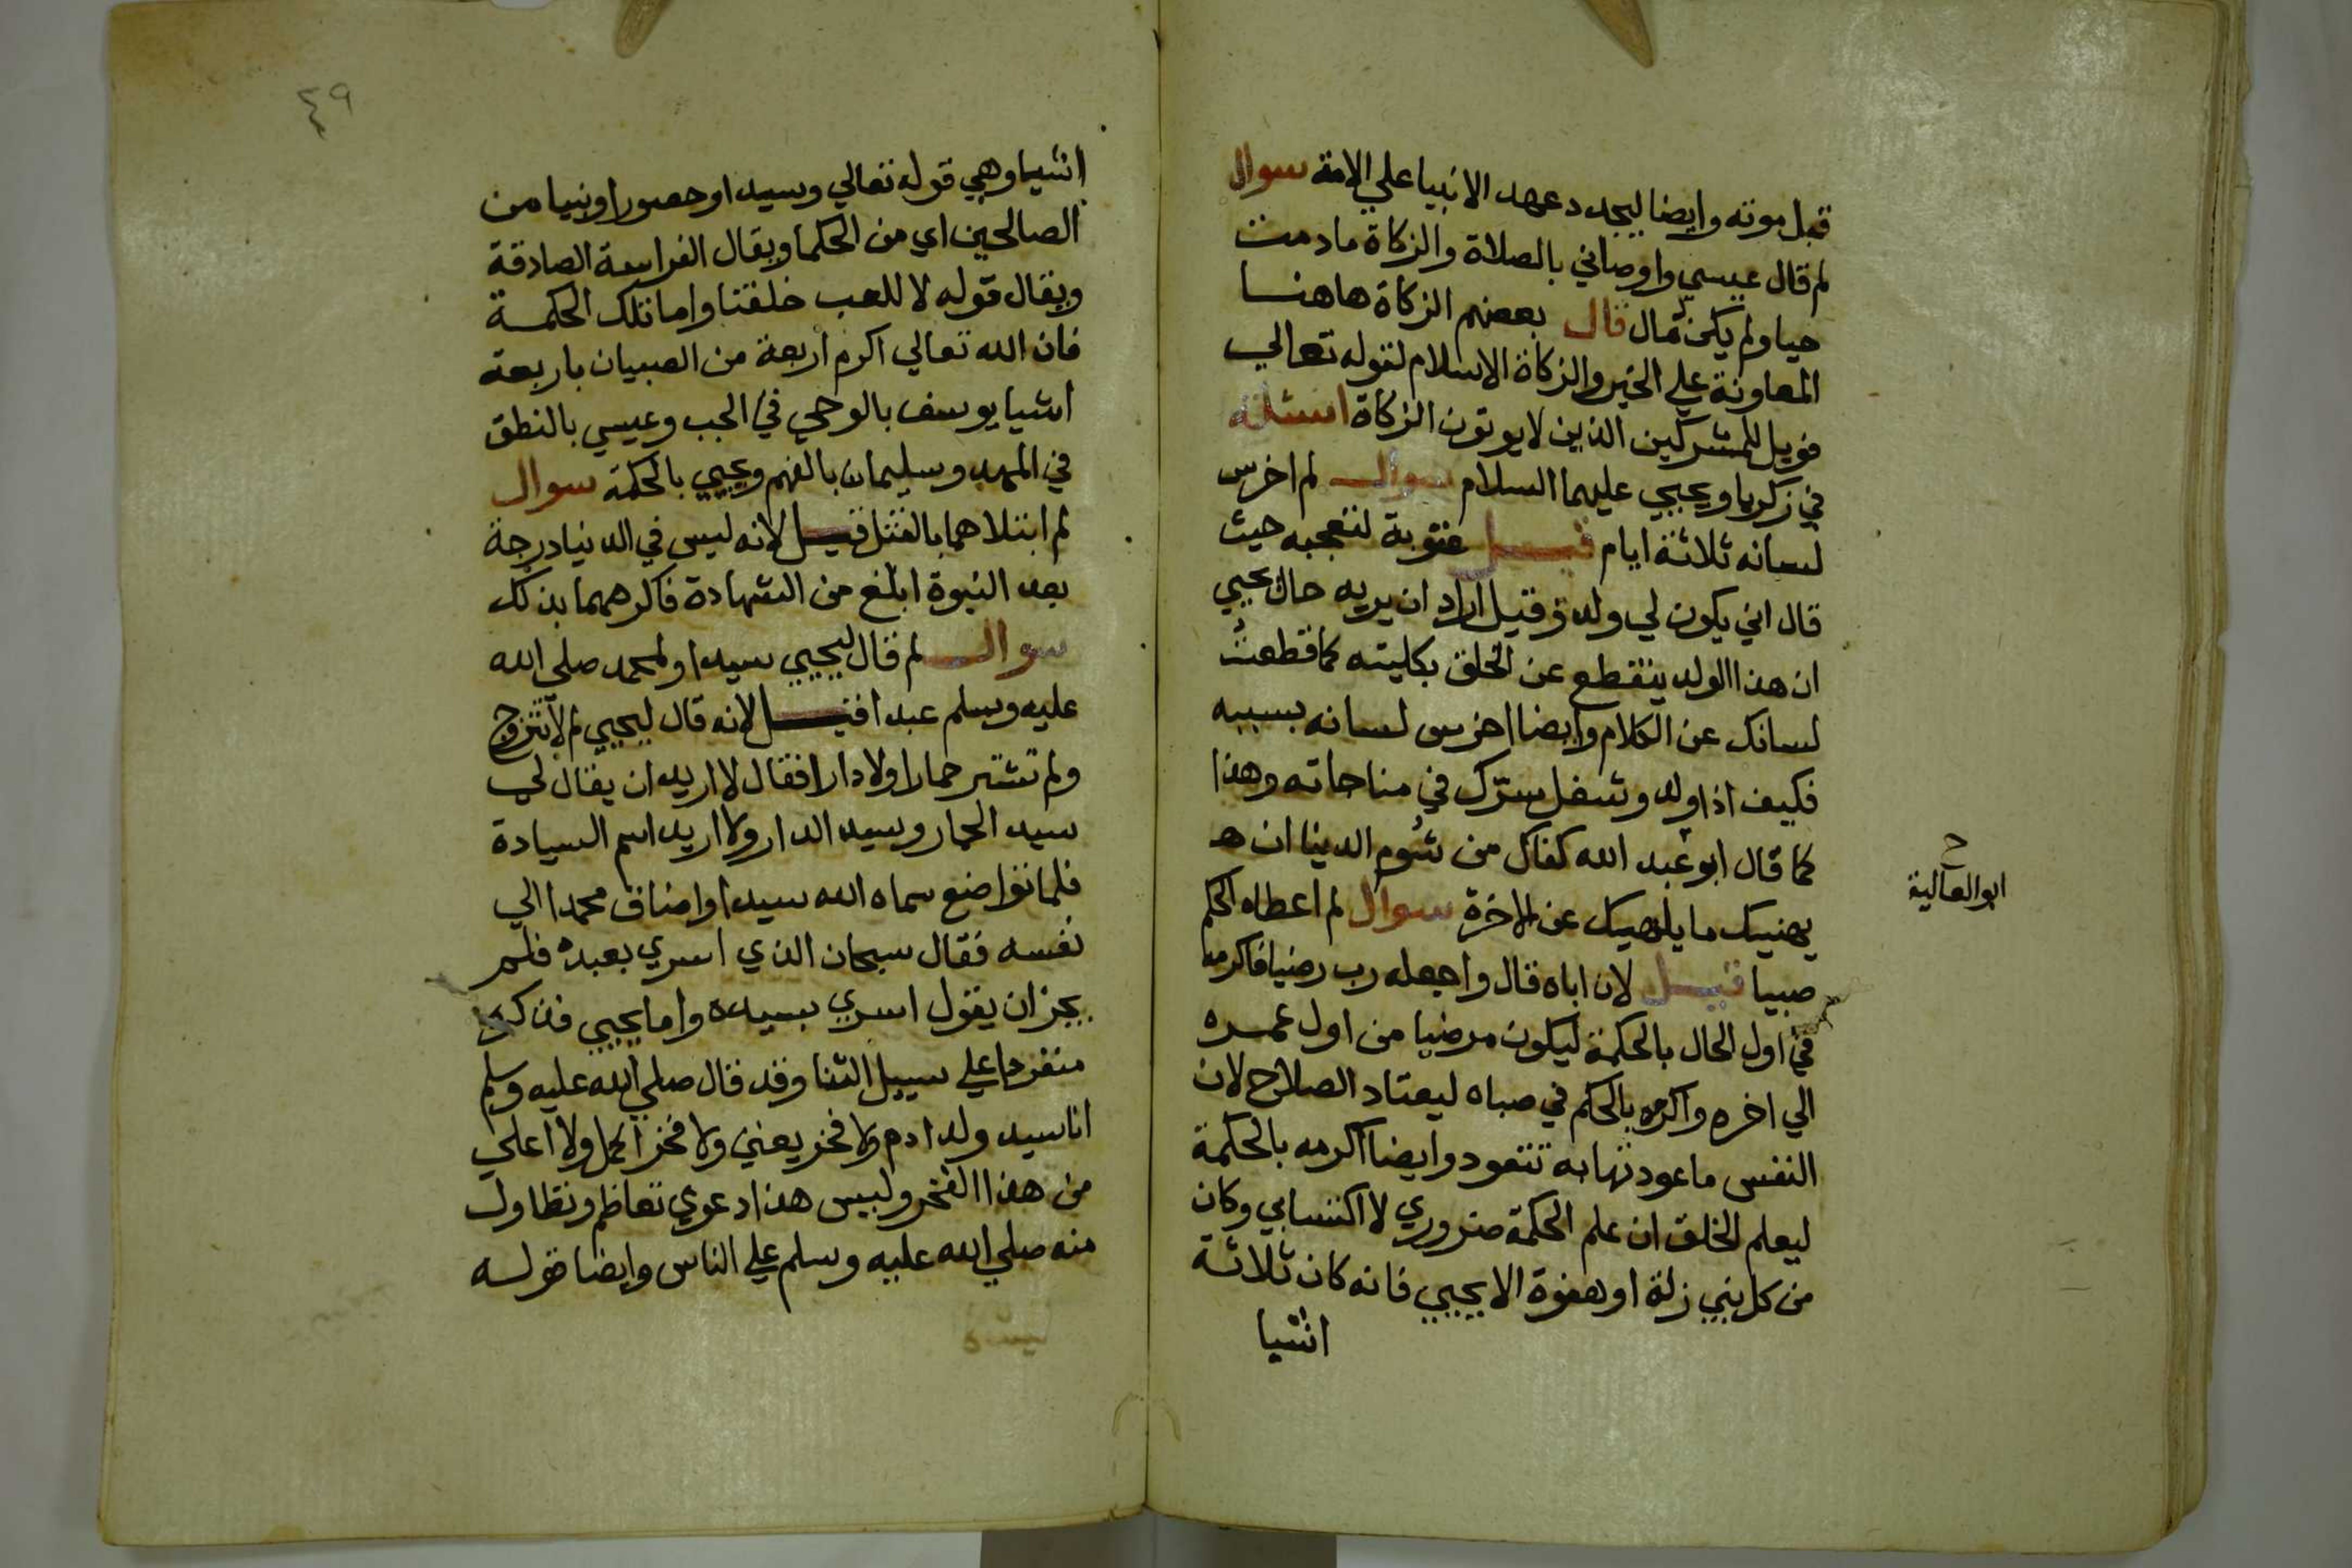 قبل موته وايضا ليجدد عهد الانبيا علي الامة سوال
لم قال عيسي واوصاني بالصلاة والزكاة مادمت
حيا ولم يكن له مال قال بعضهم الزكاة هاهنا
المعاونة علي الخير والزكاة الاسلام لقوله تعالي
فويل للمشركين الذين لا يوتون الزكاة اسئلة
في زكريا ويحيي عليهما السلام سوال لم اخرس
لسانه ثلاثة ايام قيل عقوبة لتعجبه حيث
قال اني يكون لي ولد وقيل اراد ان يريه حال يحيي
ان هذا الولد ينقطع عن الخلق بكليته كما قطعت
لسانك عن الكلام وايضا اخرس لسانه بسببه
فكيف اذا ولد وشغل سرك في مناجاته وهذا
كما قال ابو عبد الله كفاك من شوم الدينا ان هـ
يهنيك ما يلهيك عن الاخرة سوال لم اعطاه الحكم
صبيا قيل لان اباه قال واجعله رب رضيا فاكرمه
في اول الحال بالحكمة ليكون مرضيا من اول عمره
الي اخره واكرمه بالحكم في صباه ليعتاد الصلاح لان
النفس ما عودتها به تتعود وايضا اكرمه بالحكمة
ليعلم الخلق ان علم الحكمة ضروري لا اكتسابي وكان
من كل بني زلة او هفوة الا يحيي فانه كان ثلاثة
اشيا
ح
ابو العالية
٤٩
اشيا وهي قوله تعالي وسيدا وحصورا ونبيا من
الصالحين اي من الحكما ويقال الفراسة الصادقة
ويقال قوله لا للعب خلقنا واما تلك الحكمة
فان الله تعالي اكرم اربعة من الصبيان باربعة
اشيا يوسف بالوحي في الجب وعيسي بالنطق
في المهد وسليمان بالفهم ويحيي بالحكمة سوال
لم ابتلاهما بالقتل قيل لانه ليس في الدنيا درجة
بعد النبوة ابلغ من الشهادة فاكرمهما بذلك
سوال لم قال ليحيي سيدا ولمحمد صلي الله
عليه وسلم عبدا قيل لانه قال ليحيي لم لا تتزوج
ولم تشتر حمارا ولا دارا فقال لا اريد ان يقال لي
سيد الحمار وسيد الدار ولا اريد اسم السيادة
فلما تواضع سماه الله سيدا واضاف محمدا الي
نفسه فقال سبحان الذي اسري بعبده فلم
يجز ان يقول اسري بسيده واما يحيي فذكر
منفردا علي سبيل الثنا وقد قال صلي الله عليه وسلم
انا سيد ولد ادم ولا فخر يعني ولا فخر اكمل ولا اعلي
من هذا الفخر وليس هذا دعوي تعاظم وتطاول
منه صلي الله عليه وسلم علي الناس وايضا قوله